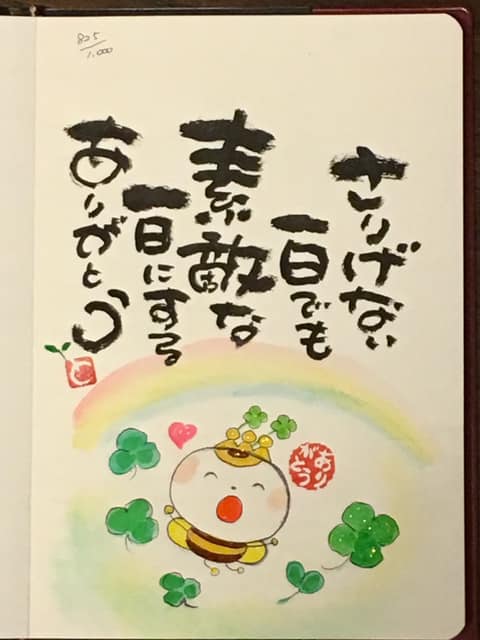 825/1,000
さりげない
一日でも
素敵な
一日にする
ありがとう
ありがとう